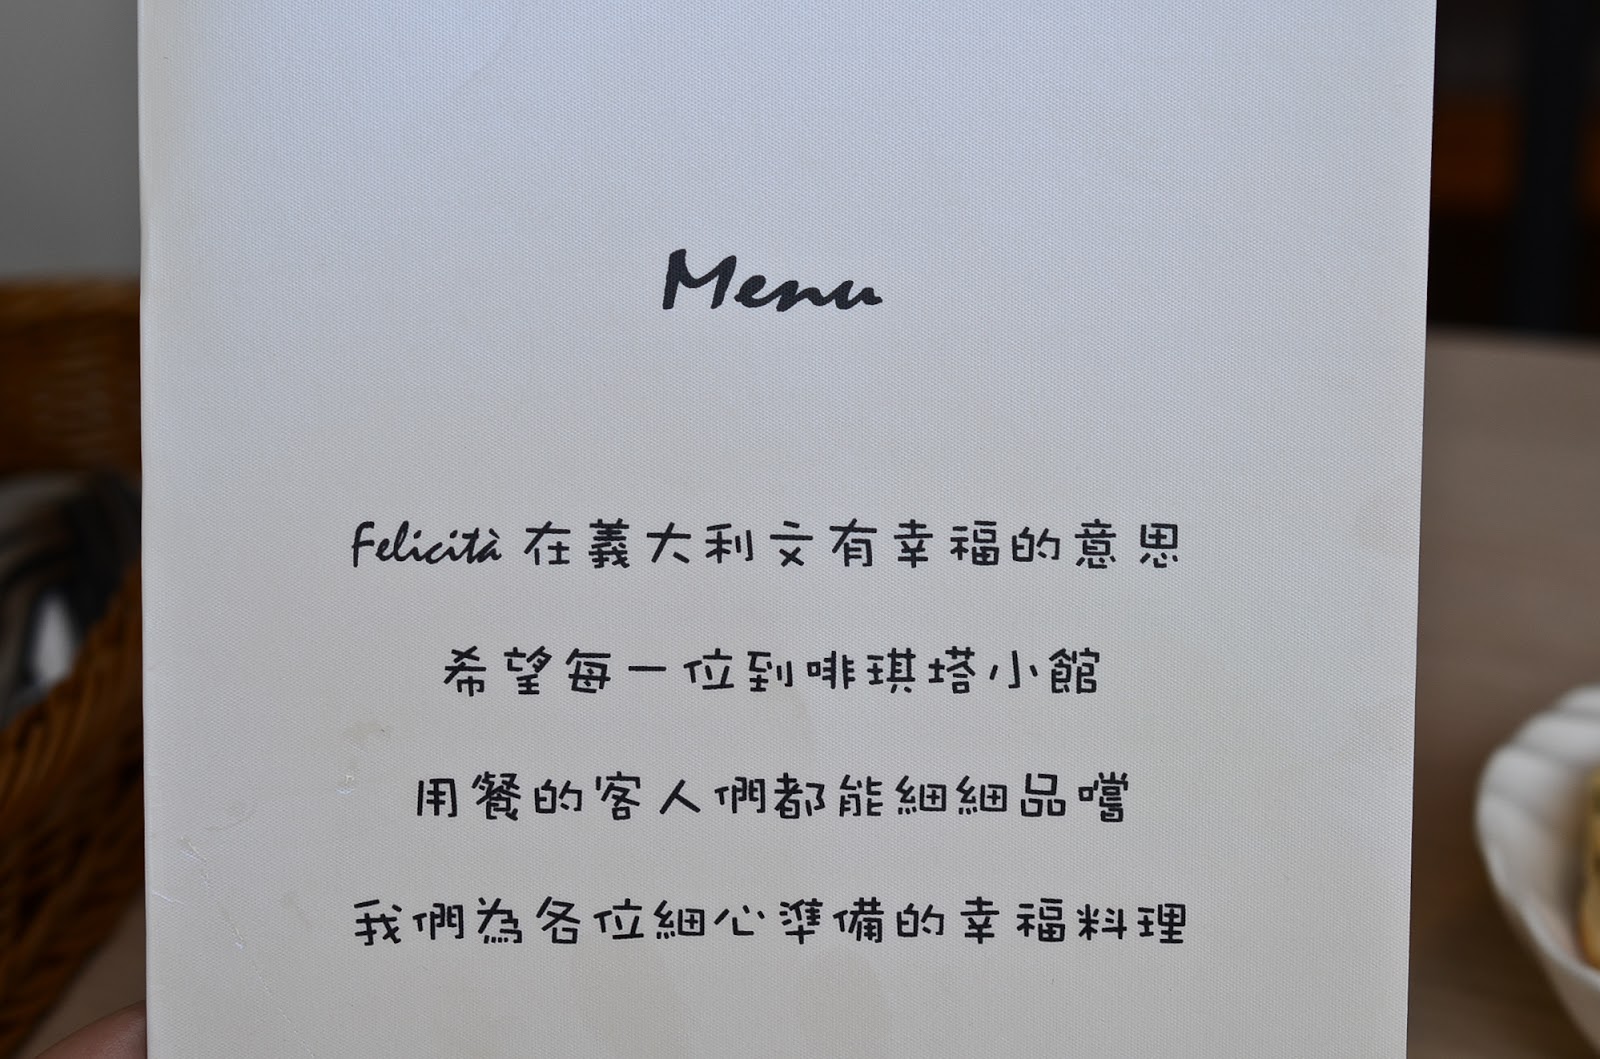 Menu
Felicità 在義大利文有幸福的意思
希望每一位到啡琪塔小館
用餐的客人們都能細細品嚐
我們為各位細心準備的幸福料理